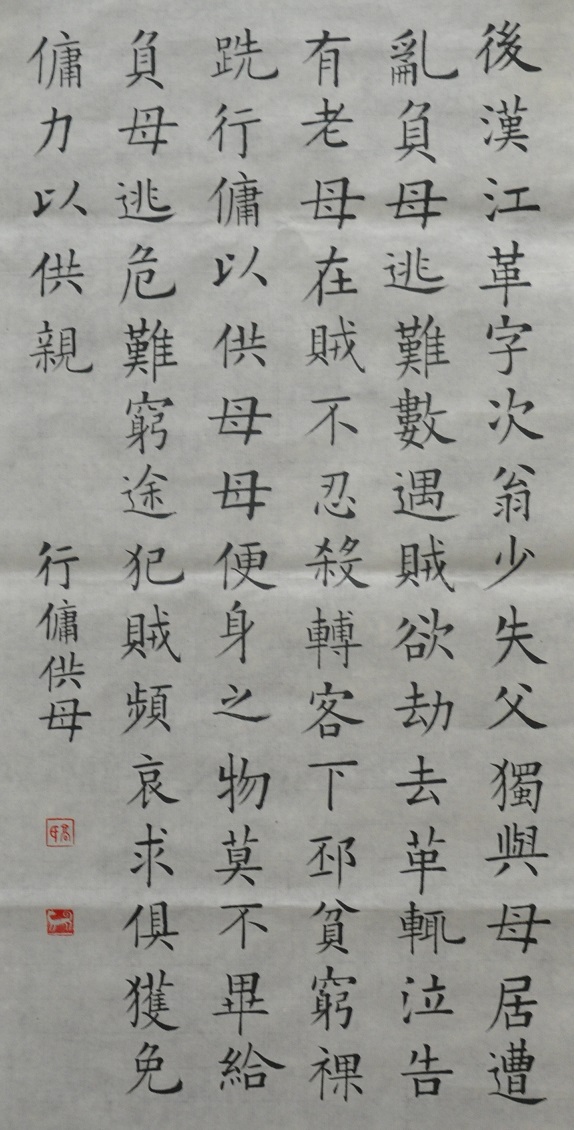 後漢江革字次翁少失父獨與母居遭
亂負母逃難數遇賊欲劫去革輒泣告
有老母在賊不忍殺轉客下邳貧窮裸
跣行傭以供母母便身之物莫不畢給
負母逃危難窮途犯賊頻哀求俱獲免
傭力以供親
行傭供母